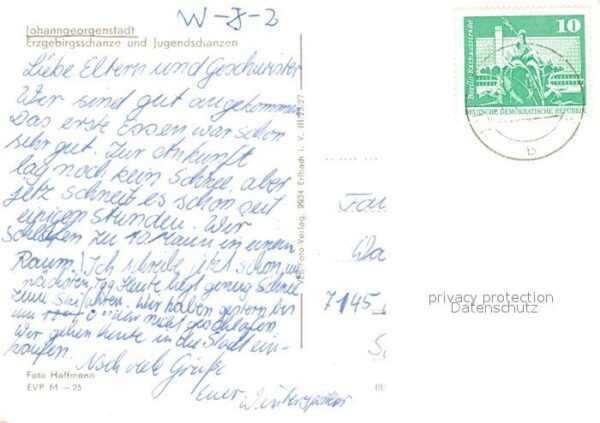 W-J-2
Johanngeorgenstadt
Erzgebirgsschanze und Jugendschanzen
Liebe Eltern und Geschwister
Wir sind gut angekommen
Das erste Essen war schon
sehr gut. Zur Ankunft
lag noch kein Schnee, aber
jetz schneit es schon seit
einigen Stunden. Wir
schlafen zu 10 Mann in einem
Raum. Ich schreibe jetzt schon am
nächsten Tag. Heute liegt genug Schnee
zum Skifahren. Wir haben gestern bis
um 0 Uhr nicht geschlafen.
Wir gehen heute in die Stadt ein-
kaufen.
Noch viele Grüße
Euer Wintersportler
Foto Hoffmann
EVP M – 25
VEB Foto-Verlag, 9934 Erlbach i. V.
III/
Fam
7145
10
Berlin-Rathausstraße
DEUTSCHE DEMOKRATISCHE REPUBLIK
b
privacy protection
Datenschutz